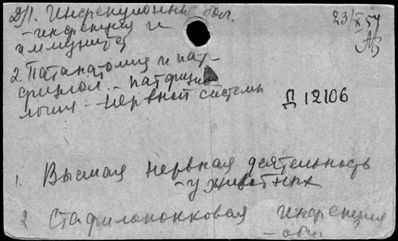 2/1. Инфекционные бол.
23/X 57
- инфекция и
иммунитет
2. Патанатомия и пат-
физиол. - патфизио
логия - нервной системы
Д 12106
1. Высшая нервная деятельность
- у животных
2 Стафилококковая инфекция